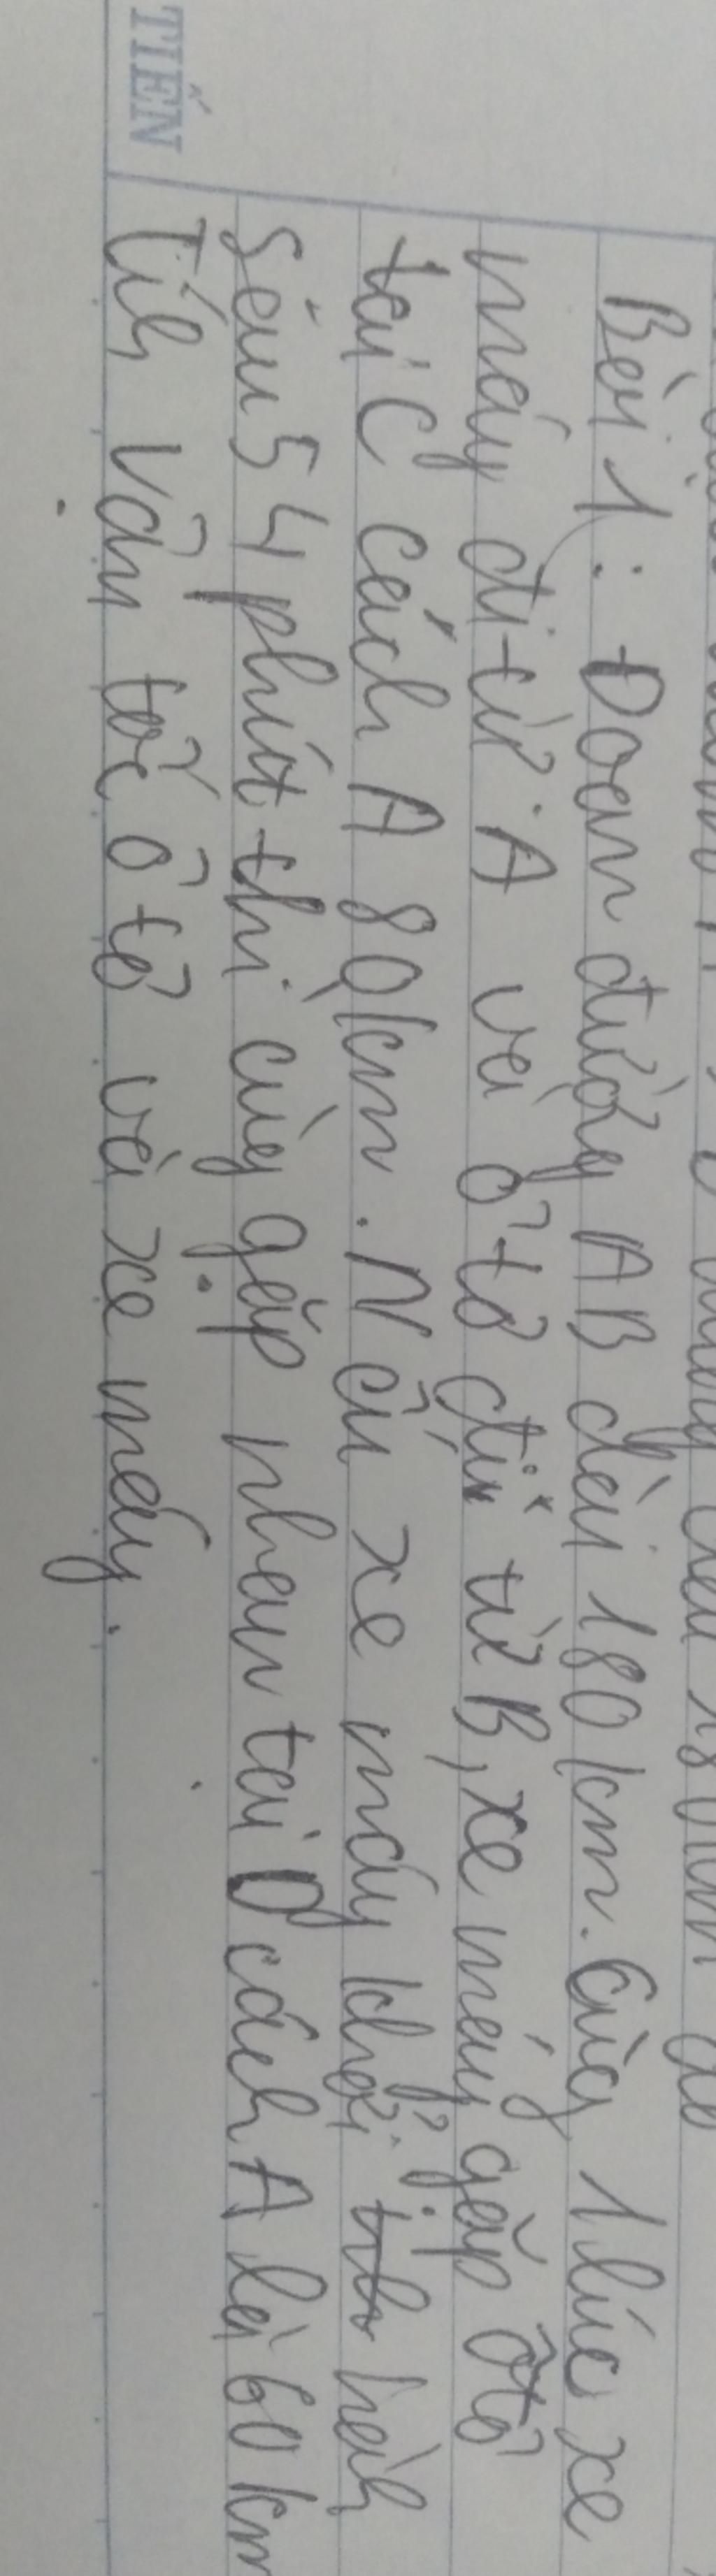 Bài 1: Đoạn đường AB dài 180 km. Cùng 1 lúc xe
máy đi từ A và ô tô đi từ B, xe máy gặp ô tô
tại C cách A 80 km. Nếu xe máy khởi hàh
sau 54 phút thì cùg gặp nhau tại D cách A là 60 km
Tíh vận tốc ô tô và xe máy.
TIẾN